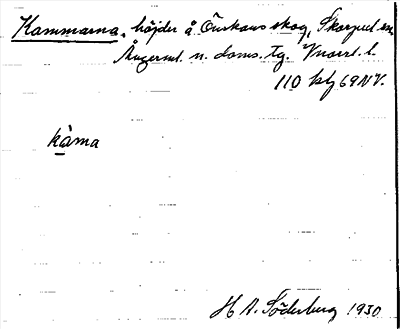 Kammarna, höjder å Önskans skog, Skorped sn.
Ångerml. n. doms. tg. Vnorrl. l.
110 kbf 69 NV.
kàma
H A. Söderberg 1930